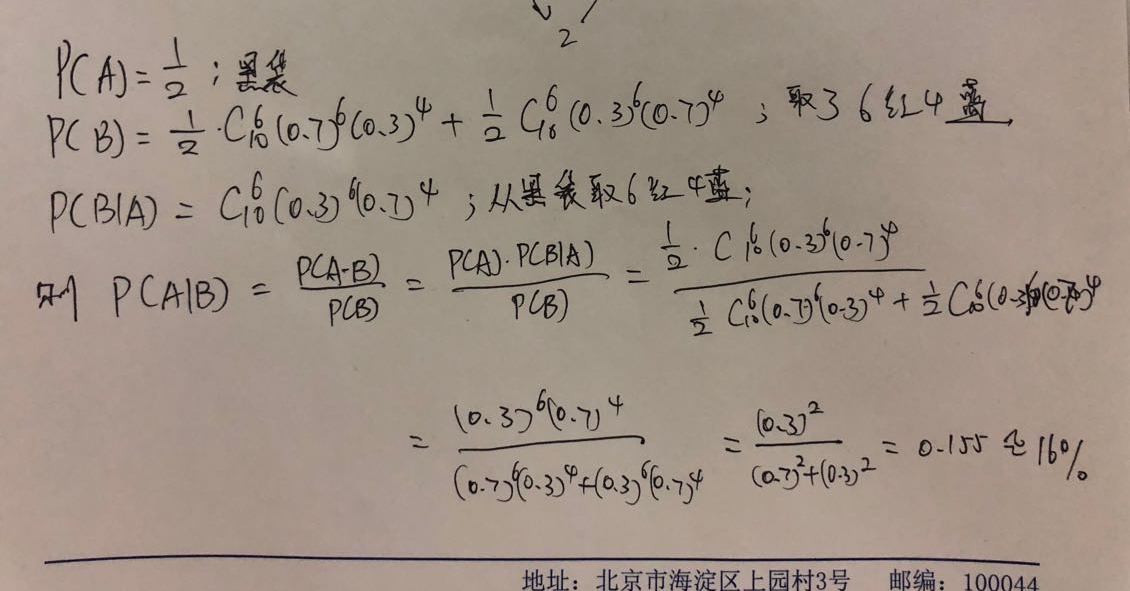 2
P(A) = 1/2 ; 黑袋
P(B) = 1/2 · C₁₀⁶(0.7)⁶(0.3)⁴ + 1/2 C₁₀⁶(0.3)⁶(0.7)⁴ ; 取了6红4蓝.
P(B|A) = C₁₀⁶(0.3)⁶(0.7)⁴ ; 从黑袋取6红4蓝;
则 P(A|B) = P(A·B)/P(B) = P(A)·P(B|A)/P(B) = 1/2 · C₁₀⁶(0.3)⁶(0.7)⁴ / 1/2 C₁₀⁶(0.7)⁶(0.3)⁴ + 1/2 C₁₀⁶(0.3)⁶(0.7)⁴
= (0.3)⁶(0.7)⁴ / (0.7)⁶(0.3)⁴+(0.3)⁶(0.7)⁴ = (0.3)² / (0.7)²+(0.3)² = 0.155 ≈ 16%
地址：北京市海淀区上园村3号 邮编：100044